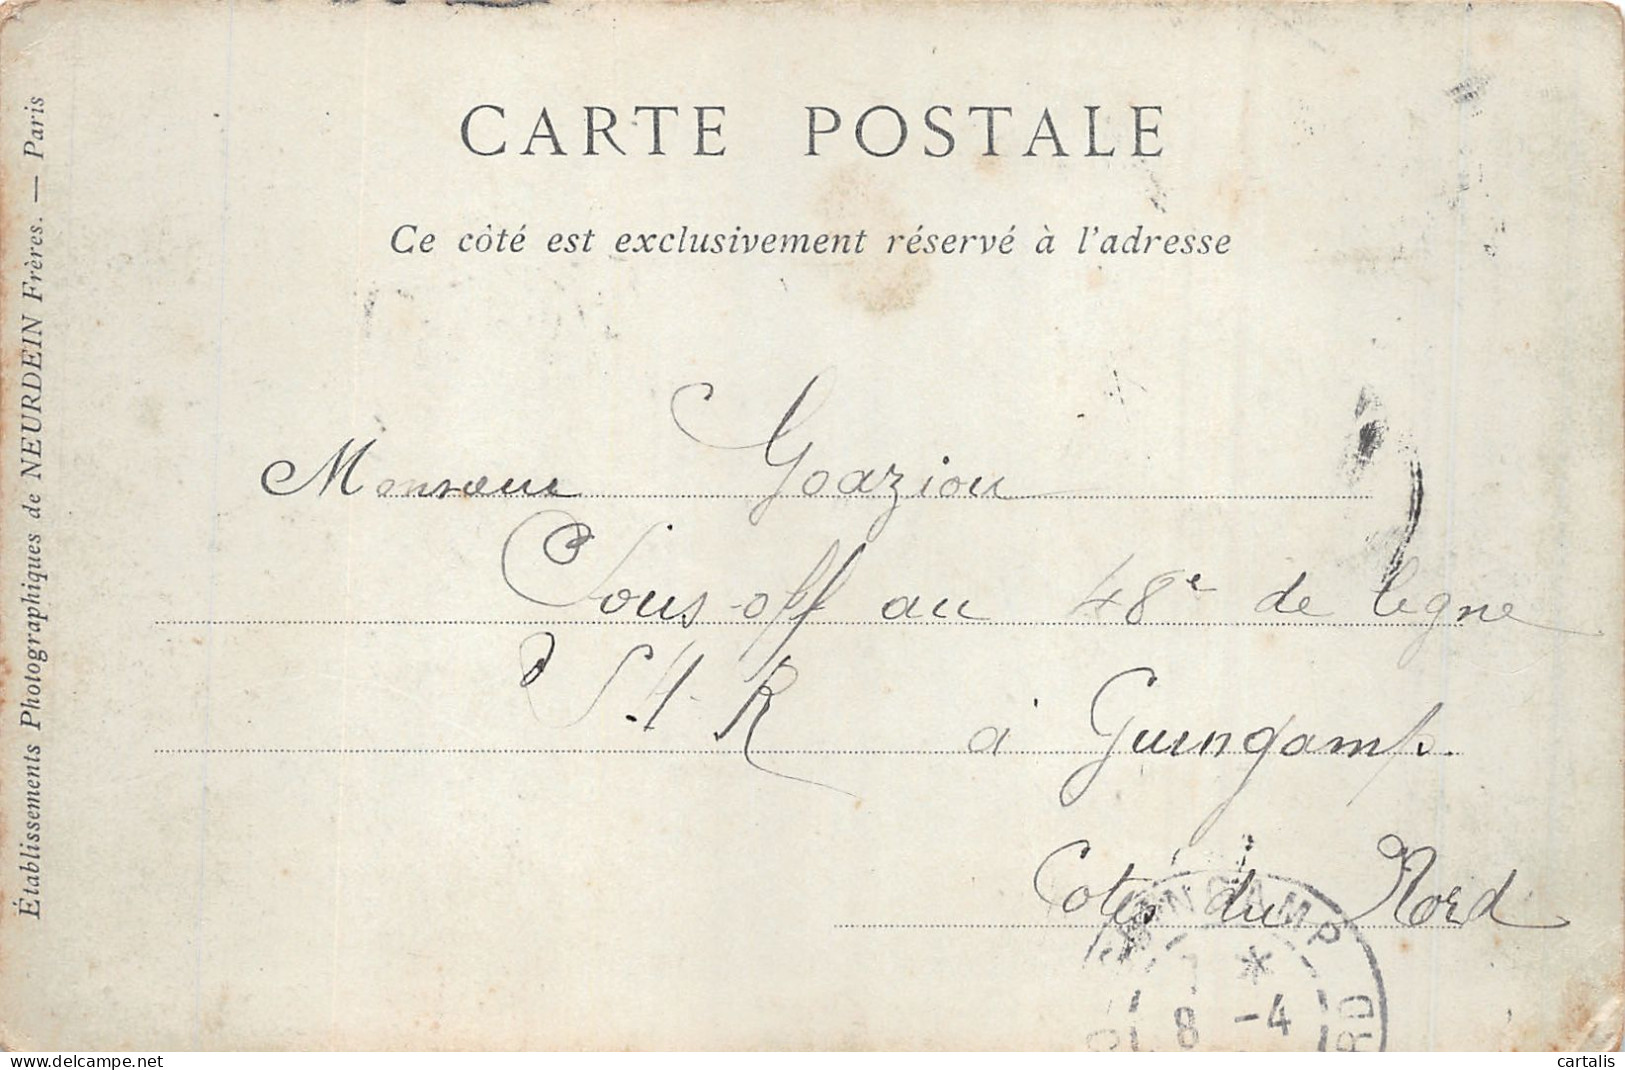 CARTE POSTALE
Ce côté est exclusivement réservé à l'adresse
Établissements Photographiques de NEURDEIN Frères. — Paris
Monsieur Goaziou
Sous-off au 48e de ligne
à Guingamp.
Cotes du Nord
GUINGAMP
7 *
8 -4
RD
www.cartalis.com
cartalis